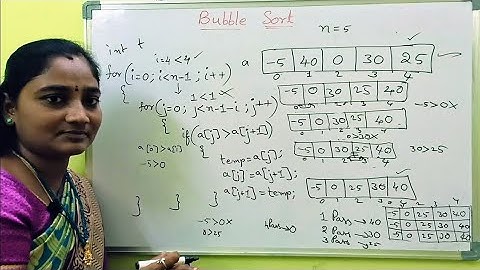 Bubble Sort
n=5
int t
i=4<4 ✓
for(i=0; i<n-1; i++)
a -5 40 0 30 25
0 1 2 3 4
{ 1<1 X
for(j=0; j<n-1-i; j++)
-5 0 30 25 40
0 1 2 3 4
-5>0X
{
-5 0 30 25 40
0 1 2 3 4
if(a[j]>a[j+1])
0>30X
a[0]>a[1]
-5>0
{ temp=a[j];
-5 0 30 25 40
30>25
a[j]=a[j+1];
a[j+1]=temp;
-5 0 25 30 40
0 1 2 3 4
} } }
-5>0X
0>25
4Pass→0
1 Pass→40
2 Pass→30
3 Pass→25
0 1 2 3 4
-5 0 25 30 40
-5 0 25 30 40
-5 0 25 30 40